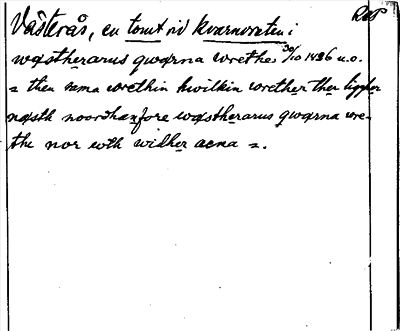 Västerås, en tomt vid kvarnvreten i
RAP
wæstherarus qwærna wrethe 30/10 1486 u.o.
= then sama wrethin hwilkin wrether ther liggher
næsth noordhanfore wæstherarus qwærna wre-
the nor wth widher aena =.